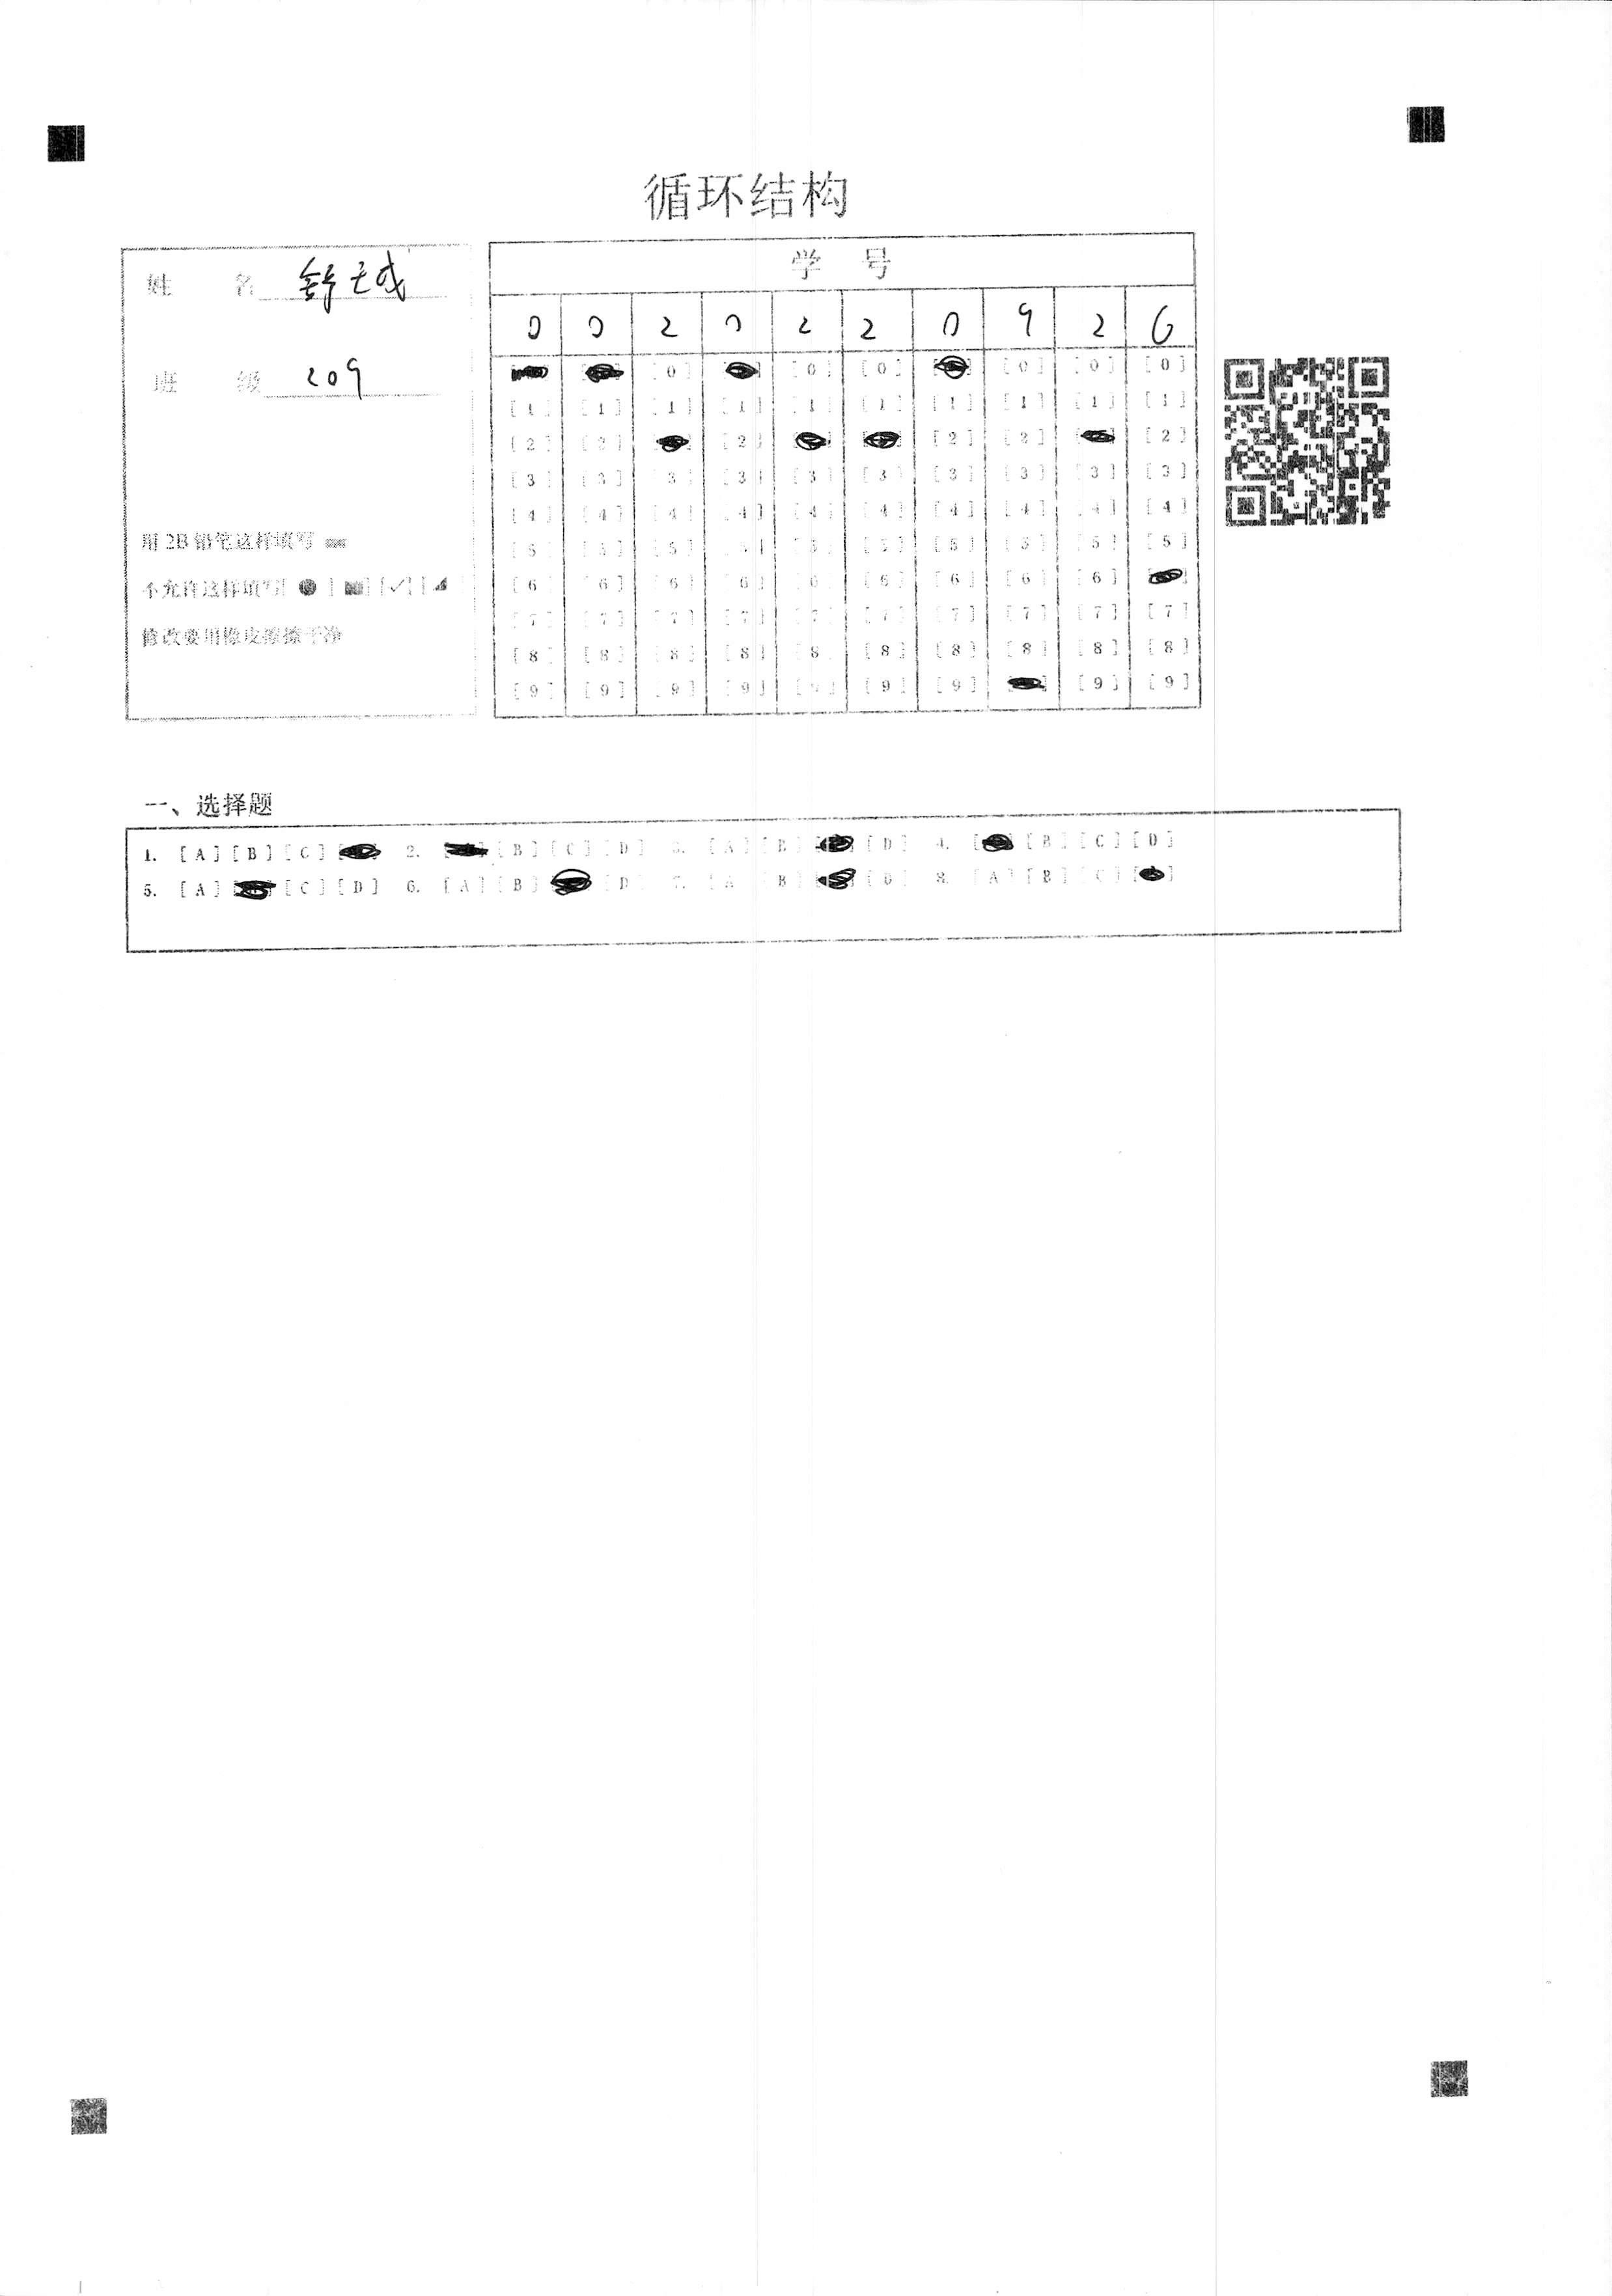 循环结构
姓 名 舒
班 级 209
用 2B 铅笔这样填写
不允许这样填写[ ] [ ] [✓] [ ]
修改要用橡皮擦擦干净
学 号
0 0 2 0 2 2 0 9 2 6
[0] [0] [0] [0] [0] [0]
[1] [1] [1] [1] [1] [1] [1] [1] [1] [1]
[2] [2] [2] [2] [2] [2]
[3] [3] [3] [3] [3] [3] [3] [3] [3] [3]
[4] [4] [4] [4] [4] [4] [4] [4] [4] [4]
[5] [5] [5] [5] [5] [5] [5] [5] [5] [5]
[6] [6] [6] [6] [6] [6] [6] [6] [6]
[7] [7] [7] [7] [7] [7] [7] [7] [7] [7]
[8] [8] [8] [8] [8] [8] [8] [8] [8] [8]
[9] [9] [9] [9] [9] [9] [9] [9] [9]
一、选择题
1. [A] [B] [C] 2. [B] [C] [D] 3. [A] [B] [D] 4. [B] [C] [D]
5. [A] [C] [D] 6. [A] [B] [D] 7. [A] [B] [D] 8. [A] [B] [C]